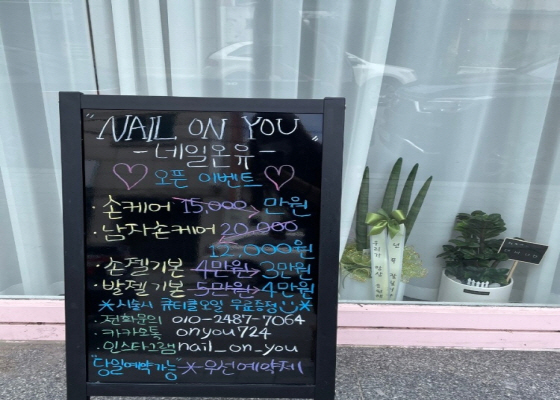 "NAIL ON YOU"
-네일온유-
♡오픈 이벤트♡
·손케어 15,000→만원
·남자손케어 20,000→
12,000원
·손젤기본 4만원→3만원
·발젤기본 5만원→4만원
*시술시 큐티클오일 무료증정☺*
·전화문의 010-2487-7064
·카카오톡 onyou724
·인스타그램 nail_on_you
"당일예약가능" *우선예약제!